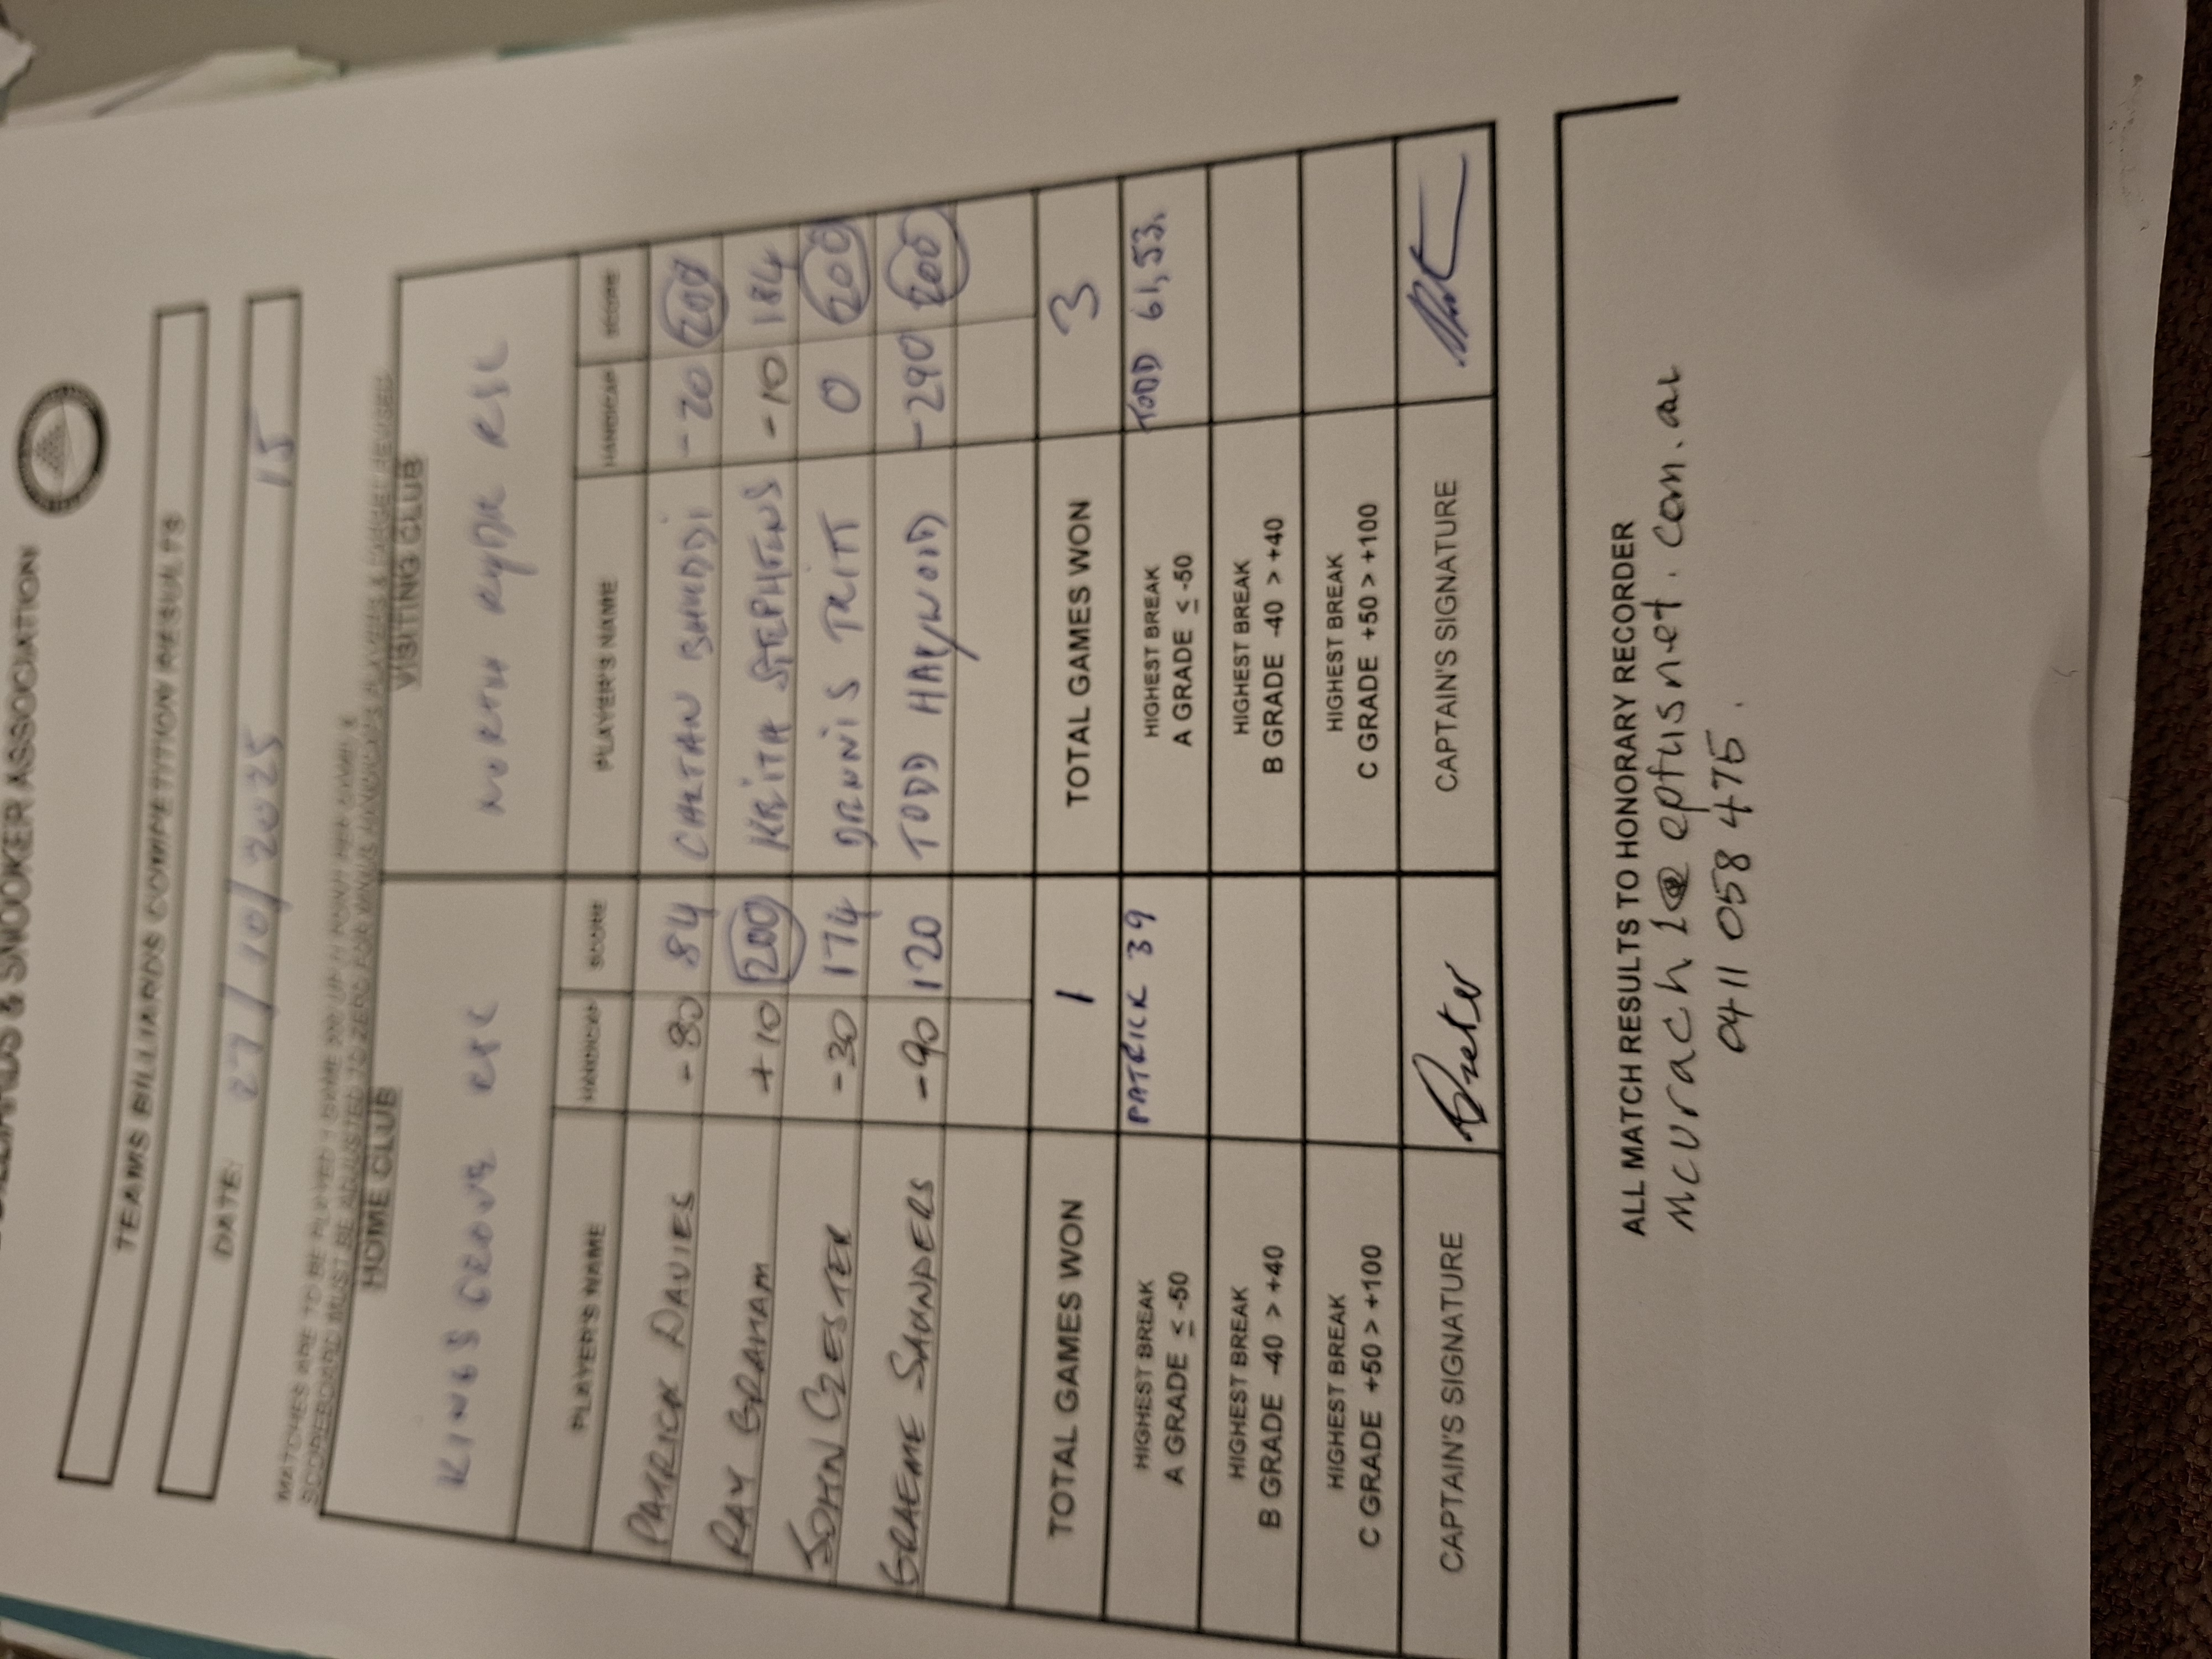 BILLIARDS & SNOOKER ASSOCIATION
TEAMS BILLIARDS COMPETITION RESULTS
DATE: 27/10/2025 15
MATCHES ARE TO BE PLAYED 1 GAME 200 UP
SCOREBOARD MUST BE ADJUSTED TO ZERO FOR MINUS HANDICAPS PLAYERS & TARGET REVISED
HOME CLUB VISITING CLUB
KINGSGROVE RSC NORTH RYDE RSL
PLAYER'S NAME HANDICAP SCORE PLAYER'S NAME HANDICAP SCORE
PATRICK DAVIES -80 84 CHETAN BHUDDI -20 200
RAY GRAHAM +10 200 KEITH STEPHENS -10 184
JOHN CZESTER -30 174 DENNIS TRITT 0 200
GRAEME SAUNDERS -90 120 TODD HAYWOOD -290 200
TOTAL GAMES WON 1 TOTAL GAMES WON 3
HIGHEST BREAK HIGHEST BREAK
A GRADE ≤ -50 PATRICK 39 A GRADE ≤ -50 TODD 61, 53.
HIGHEST BREAK HIGHEST BREAK
B GRADE -40 > +40 B GRADE -40 > +40
HIGHEST BREAK HIGHEST BREAK
C GRADE +50 > +100 C GRADE +50 > +100
CAPTAIN'S SIGNATURE CAPTAIN'S SIGNATURE
ALL MATCH RESULTS TO HONORARY RECORDER
mcvrach1@optusnet.com.au
0411 058 475.